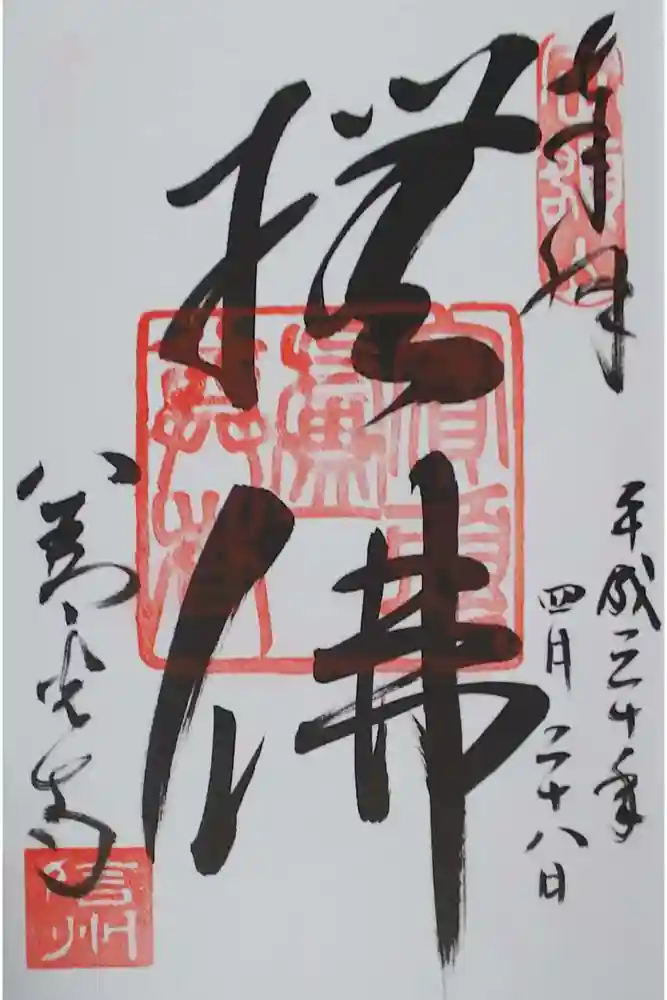 奉拝
平成三十年
四月二十八日
撫佛
善光寺
信州